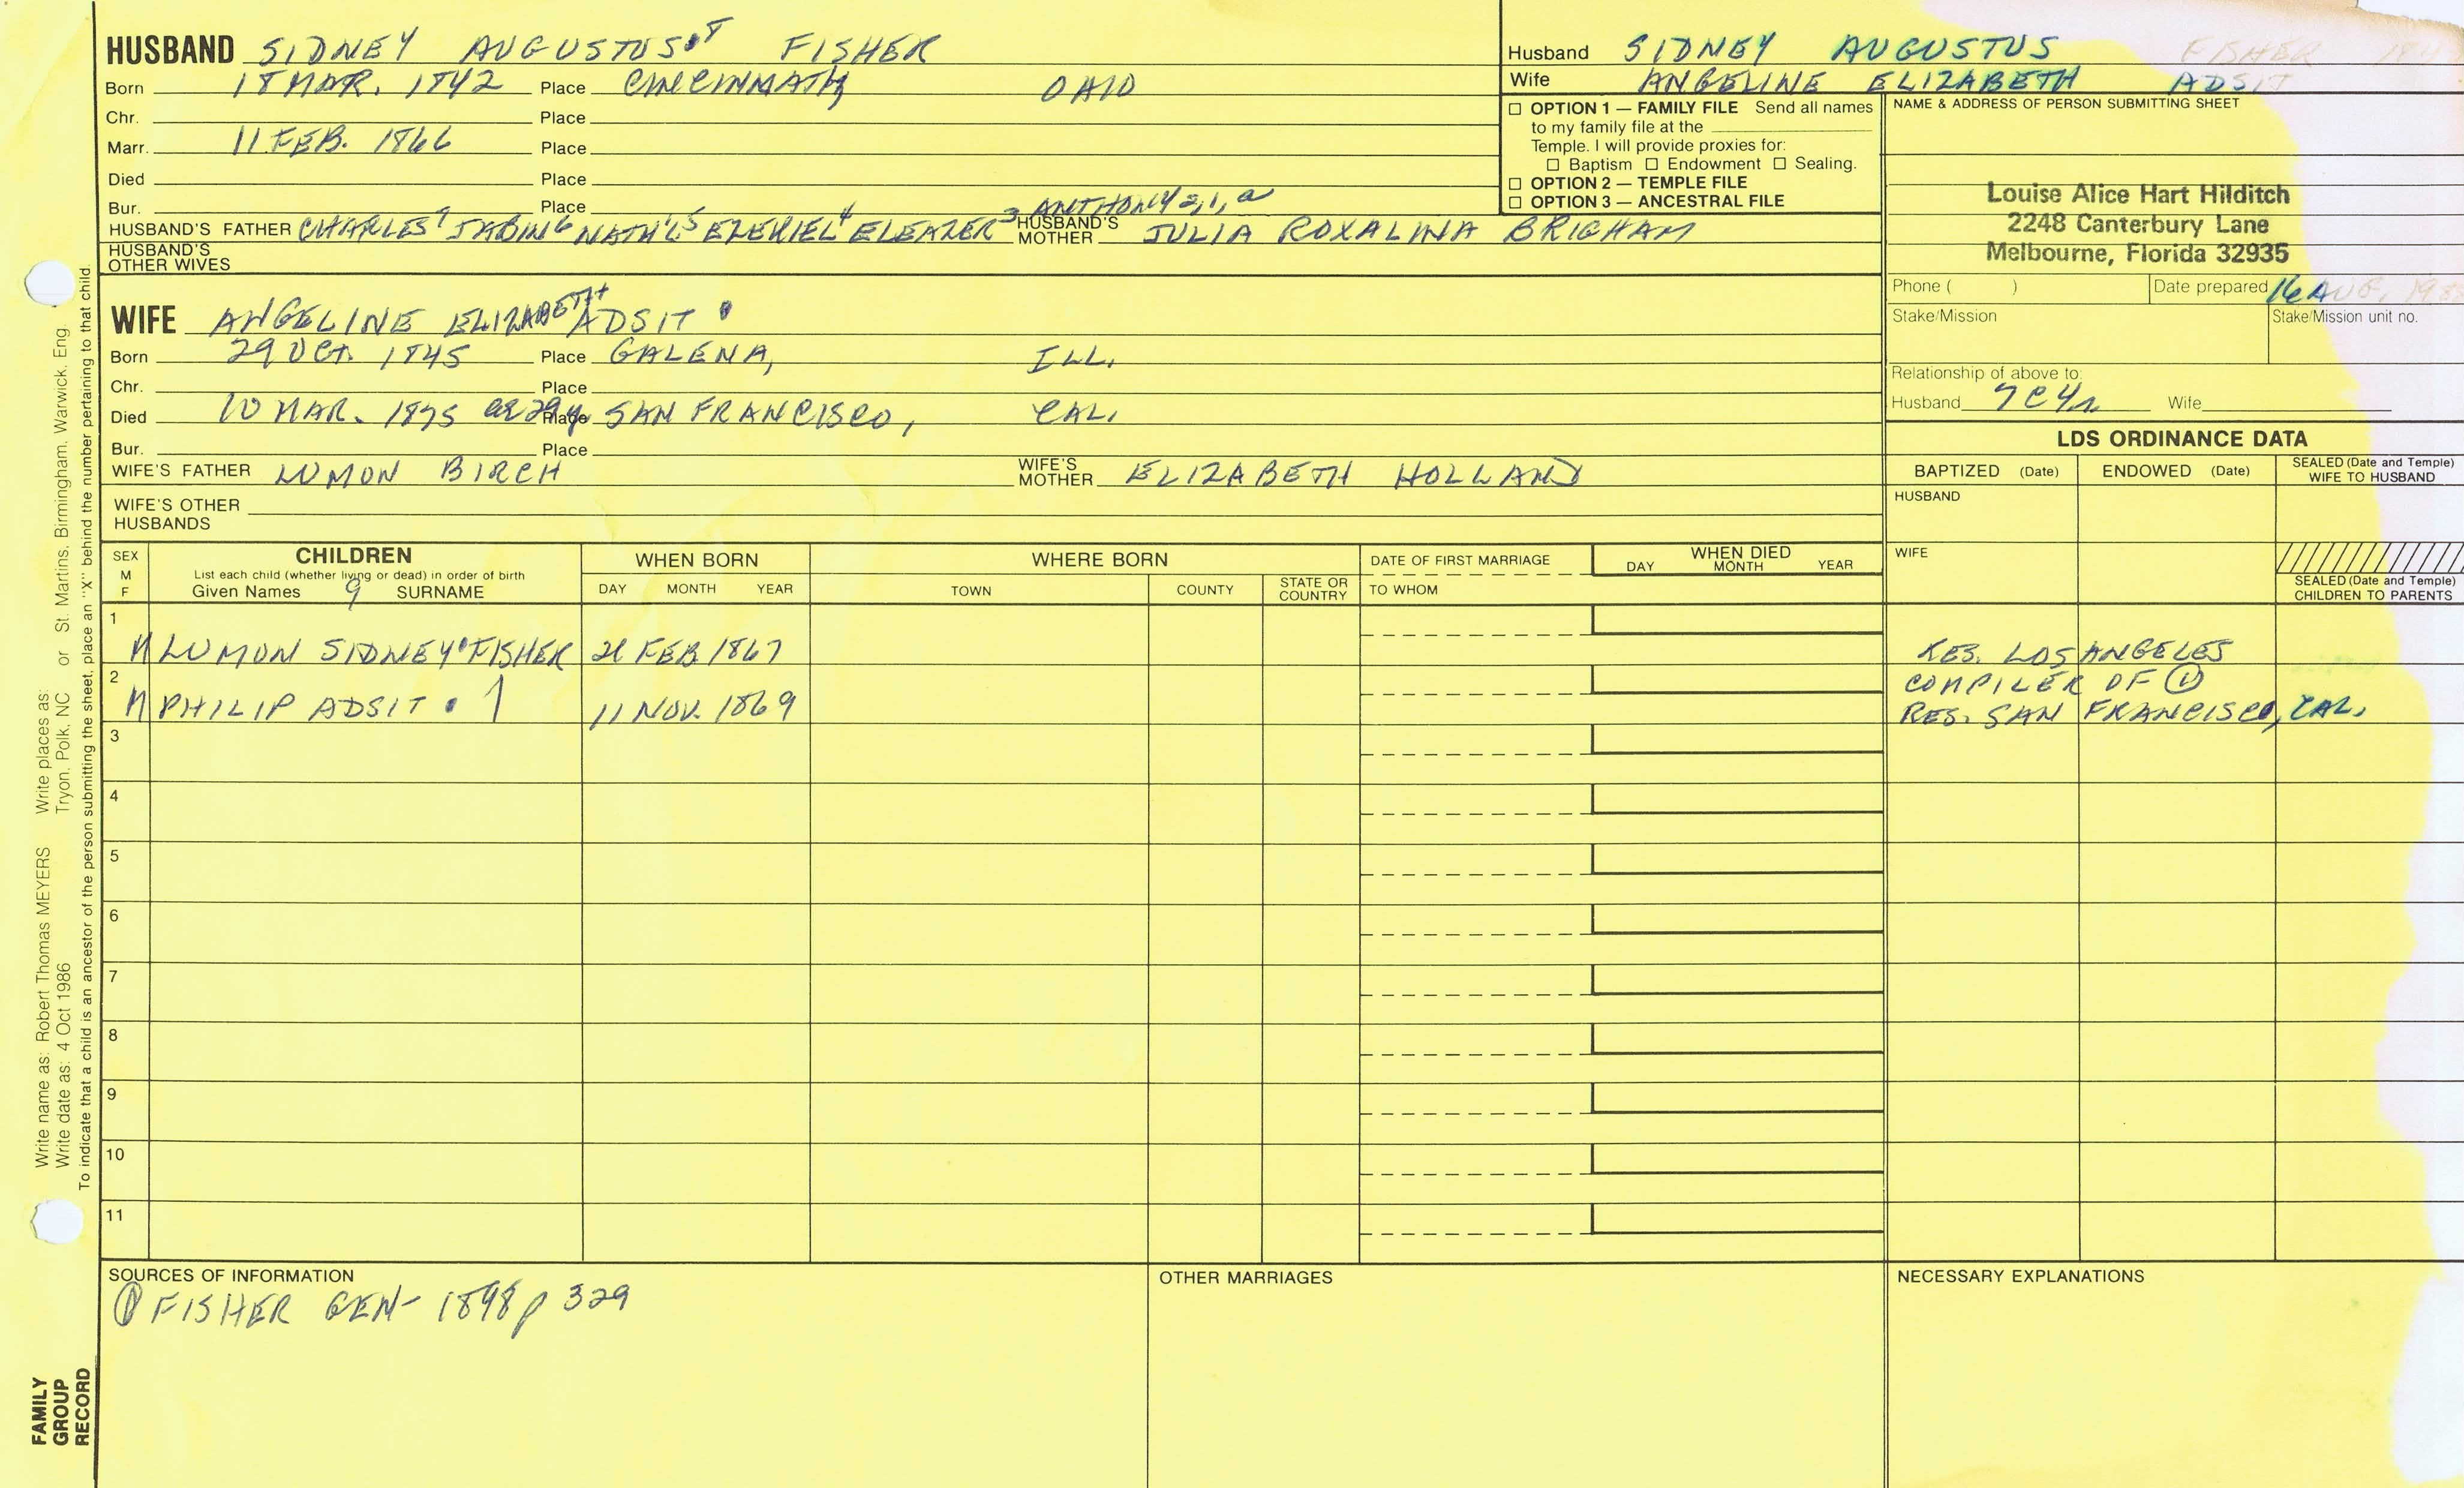 HUSBAND SIDNEY AUGUSTUS 8 FISHER
Born 18 MAR. 1842 Place CINCINNATI, OHIO
Chr. Place
Marr. 11 FEB. 1866 Place
Died Place
Bur. Place ANTHONY 2, 1, a
HUSBAND'S FATHER CHARLES 7 JABIN 6 NATH'L 5 EZEKIEL 4 ELEAZER 3 HUSBAND'S MOTHER JULIA ROXALINA BRIGHAM
HUSBAND'S OTHER WIVES
WIFE ANGELINE ELIZABETH ADSIT
Born 29 OCT. 1845 Place GALENA, ILL.
Chr. Place
Died 10 MAR. 1875 ae 29y Place SAN FRANCISCO, CAL.
Bur. Place
WIFE'S FATHER LUMON BIRCH WIFE'S MOTHER ELIZABETH HOLLAND
WIFE'S OTHER HUSBANDS
Husband SIDNEY AUGUSTUS FISHER
Wife ANGELINE ELIZABETH ADSIT
☐ OPTION 1 — FAMILY FILE Send all names
to my family file at the
Temple. I will provide proxies for:
☐ Baptism ☐ Endowment ☐ Sealing.
☐ OPTION 2 — TEMPLE FILE
☐ OPTION 3 — ANCESTRAL FILE
NAME & ADDRESS OF PERSON SUBMITTING SHEET
Louise Alice Hart Hilditch
2248 Canterbury Lane
Melbourne, Florida 32935
Phone ( ) Date prepared 16 AUG.
Stake/Mission Stake/Mission unit no.
Relationship of above to:
Husband 7C4r Wife
LDS ORDINANCE DATA
BAPTIZED (Date) ENDOWED (Date) SEALED (Date and Temple) WIFE TO HUSBAND
HUSBAND
WIFE
SEALED (Date and Temple) CHILDREN TO PARENTS
SEX M F
CHILDREN
List each child (whether living or dead) in order of birth
Given Names 9 SURNAME
WHEN BORN
DAY MONTH YEAR
WHERE BORN
TOWN COUNTY STATE OR COUNTRY
DATE OF FIRST MARRIAGE
TO WHOM
WHEN DIED
DAY MONTH YEAR
1 M LUMON SIDNEY FISHER 21 FEB 1867 RES. LOS ANGELES
COMPILER OF ①
2 M PHILIP ADSIT 11 NOV. 1869 RES. SAN FRANCISCO, CAL.
3
4
5
6
7
8
9
10
11
SOURCES OF INFORMATION
① FISHER GEN- 1898 p 329
OTHER MARRIAGES
NECESSARY EXPLANATIONS
Write name as: Robert Thomas MEYERS Write places as: St. Martins, Birmingham, Warwick, Eng.
Write date as: 4 Oct 1986 Tryon, Polk, NC or
To indicate that a child is an ancestor of the person submitting the sheet, place an "X" behind the number pertaining to that child.
FAMILY
GROUP
RECORD